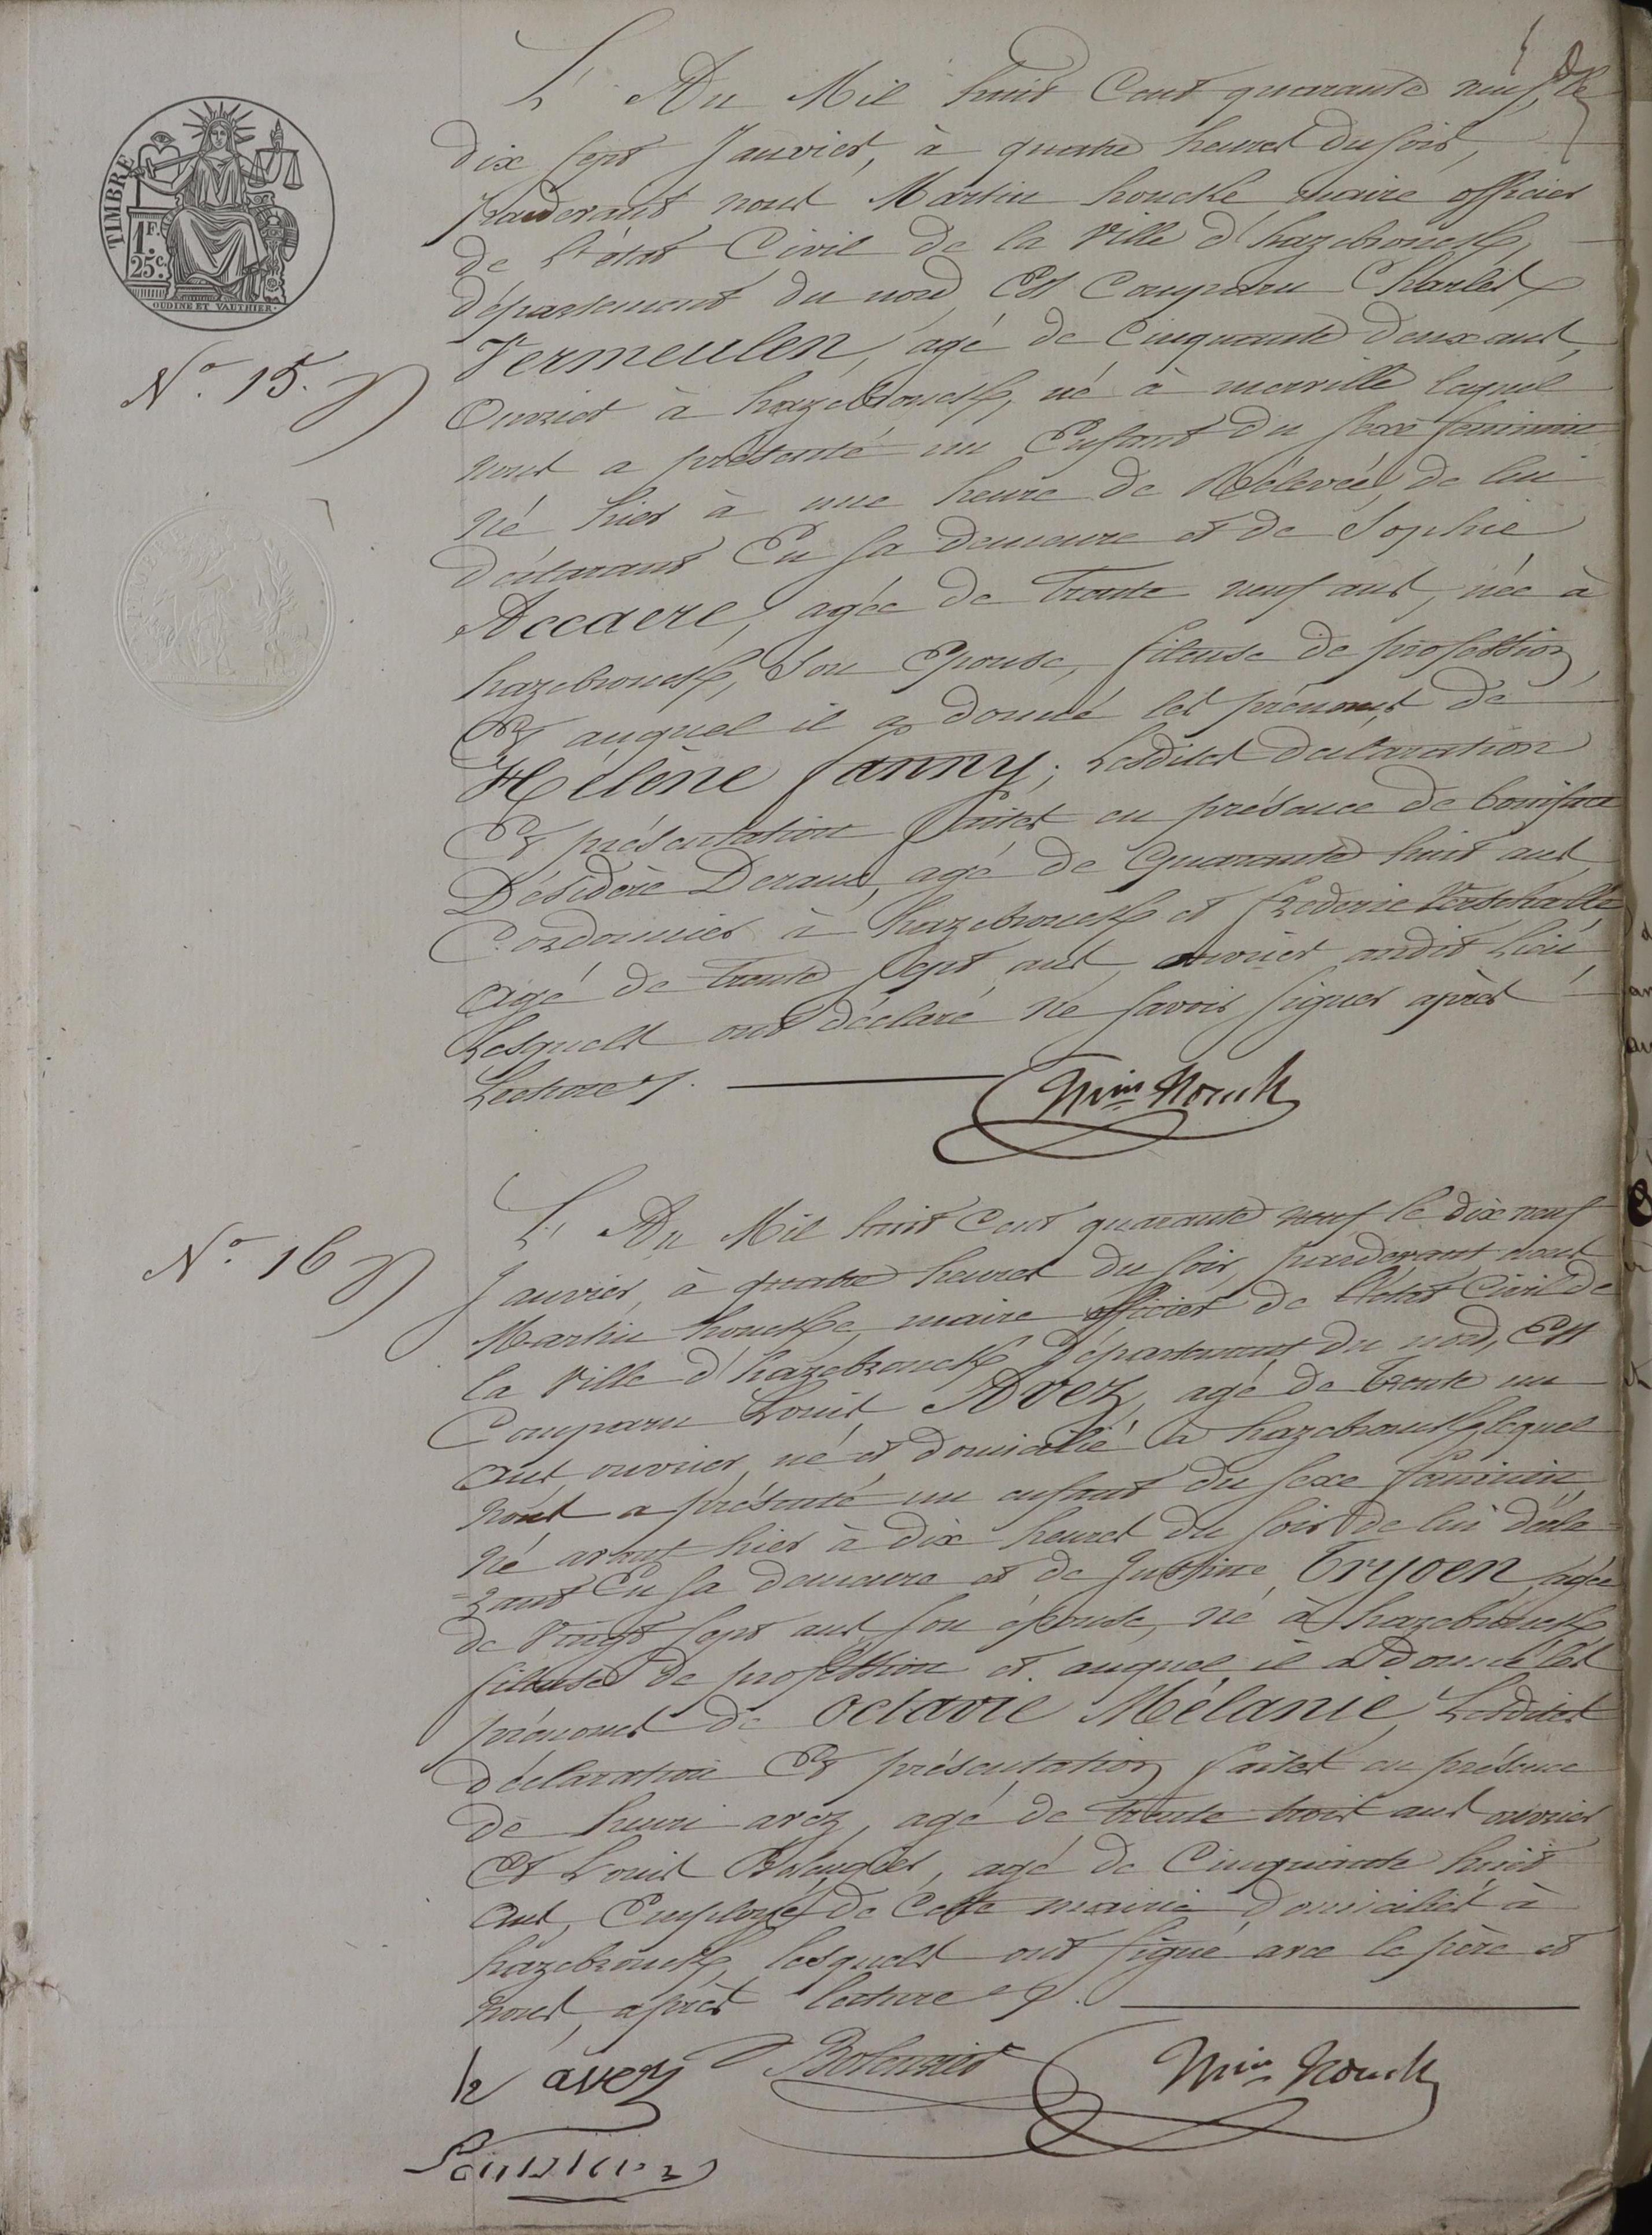 TIMBRE
1F.
25c.
OUDINÉ ET VAUTHIER.
L'An Mil huit Cent quarante neuf, le
dix sept Janvier, à quatre heures du soir,
pardevant nous Martin houcke maire officier
de l'état Civil de la Ville d'hazebrouck,
département du nord, Est Comparu Charles
Vermeulen, agé de Cinquante deux ans,
Ouvrier à hazebrouck, né à merville lequel
nous a présenté un Enfant du sexe feminin
né hier à une heure de Rélevée, de lui
déclarant En sa demeure et de Sophie
Accaere, agée de Trente neuf ans, née à
hazebrouck, Son Epouse, fileuse de profession
Et auquel il a donné les prénoms de
Hélène fanny; Lesdites declaration
Et présentation faites en présence de boniface
Désidère Deraus, agé de Quarante huit ans
Cordonnier à hazebrouck et frederic
agé de trente Sept ans ouvrier audit Lieu
Lesquels ont déclaré ne savoir signer après
Lecture
No. 15.
Min Houck
No. 16
L'An Mil huit Cent quarante neuf le dix neuf
Janvier, à quatre heures du soir, pardevant nous
Martin houcke, maire officier de l'état Civil de
la Ville d'hazebrouck, Département du nord, Est
Comparu Louis Avez, agé de Trente un
ans, ouvrier, né et domicilié à hazebrouck, lequel
nous a présenté un enfant du sexe féminin,
né avant hier à dix heures du soir de lui décla
=rant En sa demeure et de Justine Tryoen, agée
de Vingt Sept ans, son épouse, né à hazebrouck
fileuse de profession et auquel il a donné les
prénoms de Octavie Mélanie Lesdites
déclaration Et présentation faites en présence
de henri avez, agé de trente trois ans ouvrier
Et Louis, agé de Cinquante huit
ans, Employé de Cette mairie domiciliés à
hazebrouck lesquels ont signé avec le père et
nous, après lecture
h avez
Min Houck